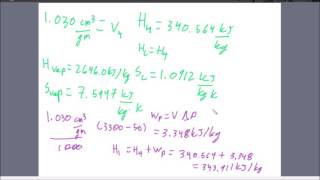 1.030 cm³/gm = V₄ H₄ = 340.564 kJ/kg
H₂ = H₄
H vap = 2646.0 kJ/kg S_L = 1.0912 kJ/kg K
S vap = 7.5947 kJ/kg K
W_P = V ΔP
1.030 cm³/gm (3300-50) = 3.348 kJ/kg
1000
H₁ = H₄ + W_P = 340.564 + 3.348
= 343.911 kJ/kg